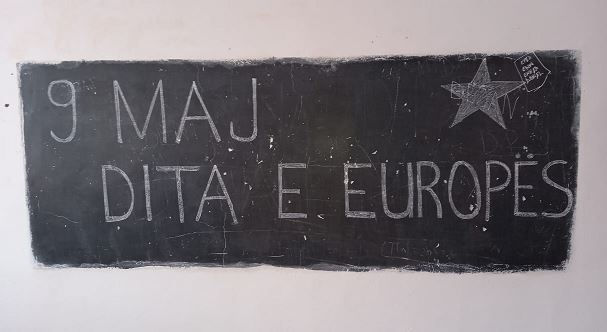 9 MAJ
DITA E EUROPËS